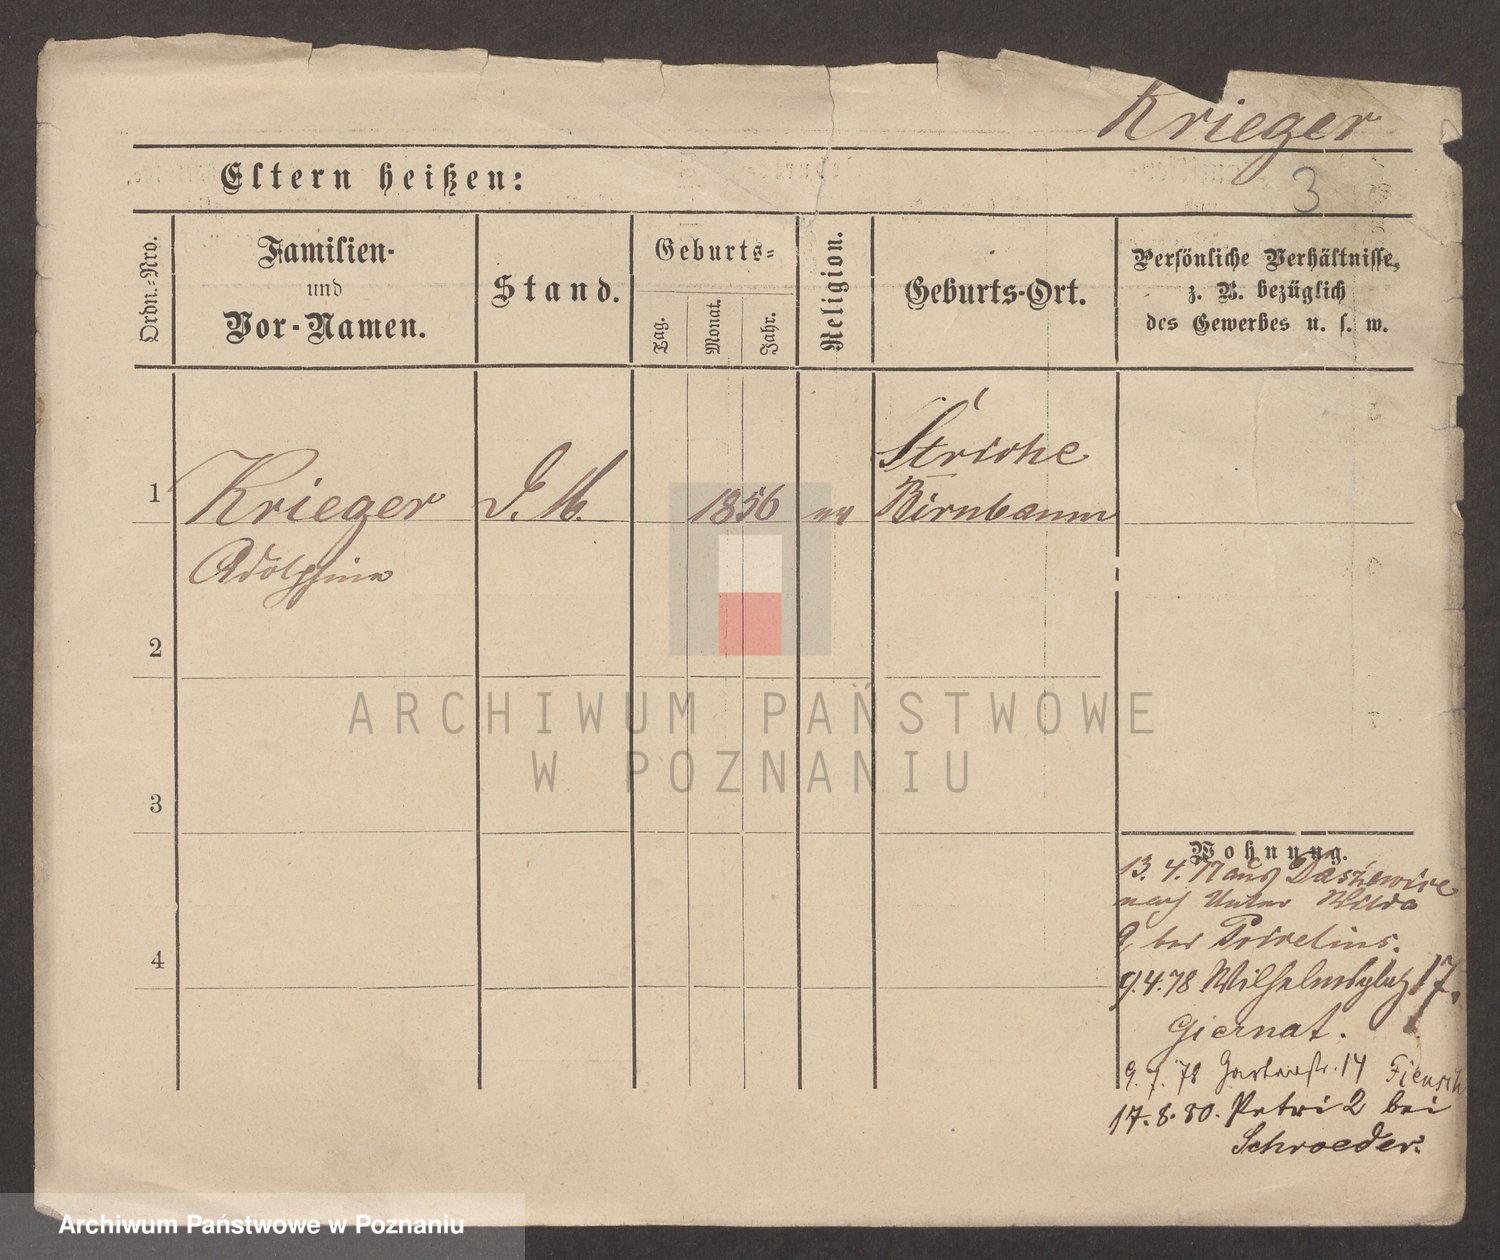 Krieger
3
Eltern heißen:
Ordn.-Nro.
Familien-
und
Vor-Namen.
Stand.
Geburts-
Tag.
Monat.
Jahr.
Religion.
Geburts-Ort.
Persönliche Verhältnisse,
z. B. bezüglich
des Gewerbes u. s. w.
1
Krieger
D. M.
1856
ev
Striche
Birnbaum
Adolphine
2
3
4
ARCHIWUM PAŃSTWOWE
W POZNANIU
Wohnung.
13. 4. 77 aus
nach Unter Wilda
9 bei
9.4.78 Wilhelmsplatz 17.
Giernat.
9. 7. 78 Gartenstr. 14 Fiensch
17. 8. 80. Petri 2 bei
Schroeder.
Archiwum Państwowe w Poznaniu